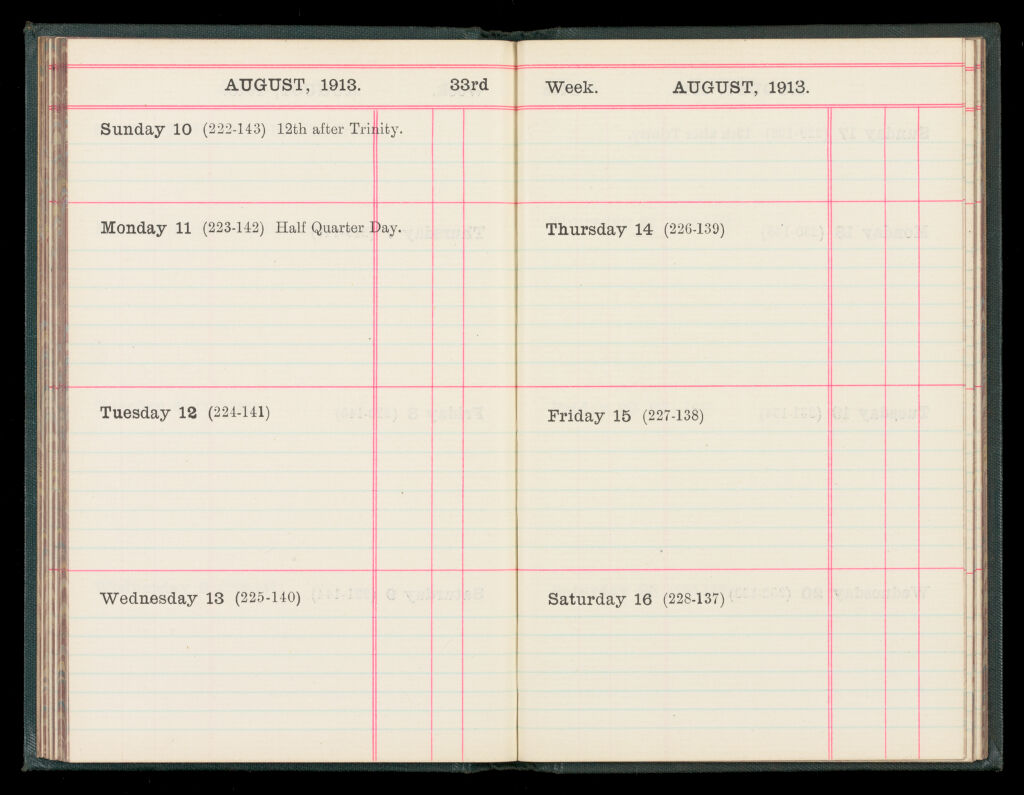 AUGUST, 1913. 33rd
Sunday 10 (222-143) 12th after Trinity.
Monday 11 (223-142) Half Quarter Day.
Tuesday 12 (224-141)
Wednesday 13 (225-140)
Week. AUGUST, 1913.
Thursday 14 (226-139)
Friday 15 (227-138)
Saturday 16 (228-137)